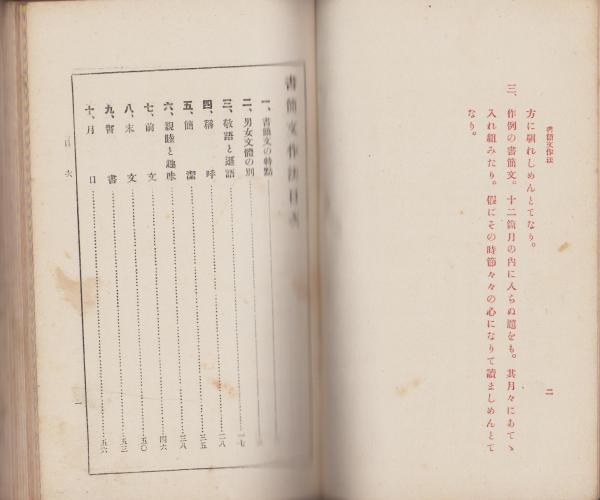 書簡文作法
方に馴れしめんとてなり。
三、作例の書簡文。十二箇月の内に入らぬ題をも。其月々にあてゝ
入れ組みたり。假にその時節々々の心になりて讀ましめんとて
なり。
二
書簡文作法目次
一、書簡文の特點
二、男女文體の別 一七
三、敬語と遜語 二八
四、稱呼 三五
五、簡潔 三八
六、親睦と趣味 四六
七、前文 五〇
八、末文 五三
九、響書 五六
十、月日
目次
一